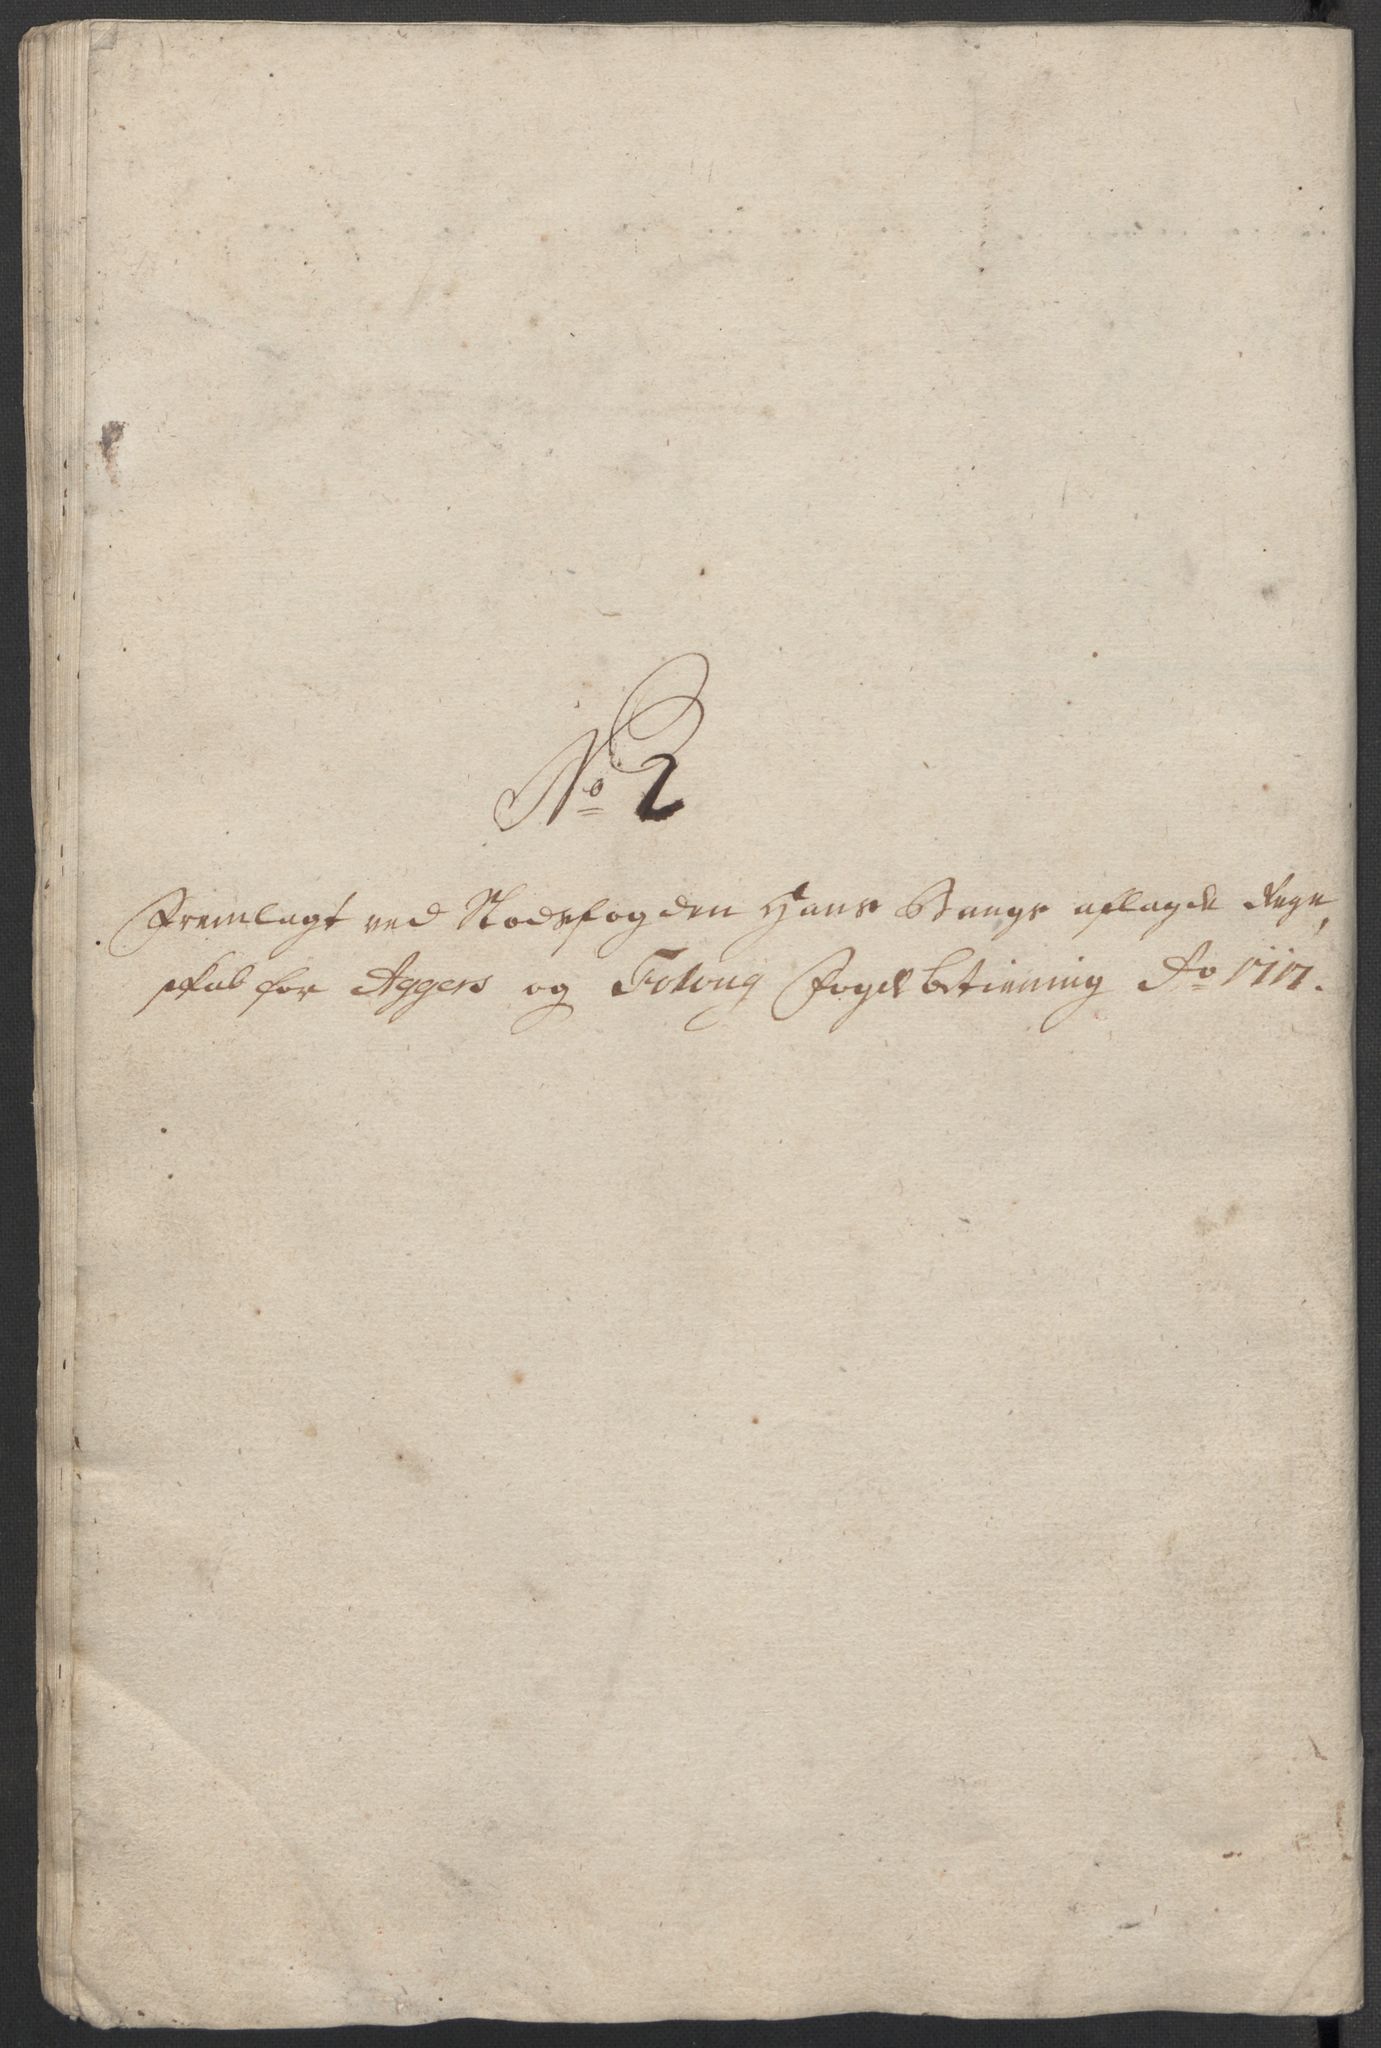 No 2
Fremlagt ved Stedsfogden Hans Bangs aflagde Regn,
skab for Aggers og Folloug Fogderbetiening Ao 1717.